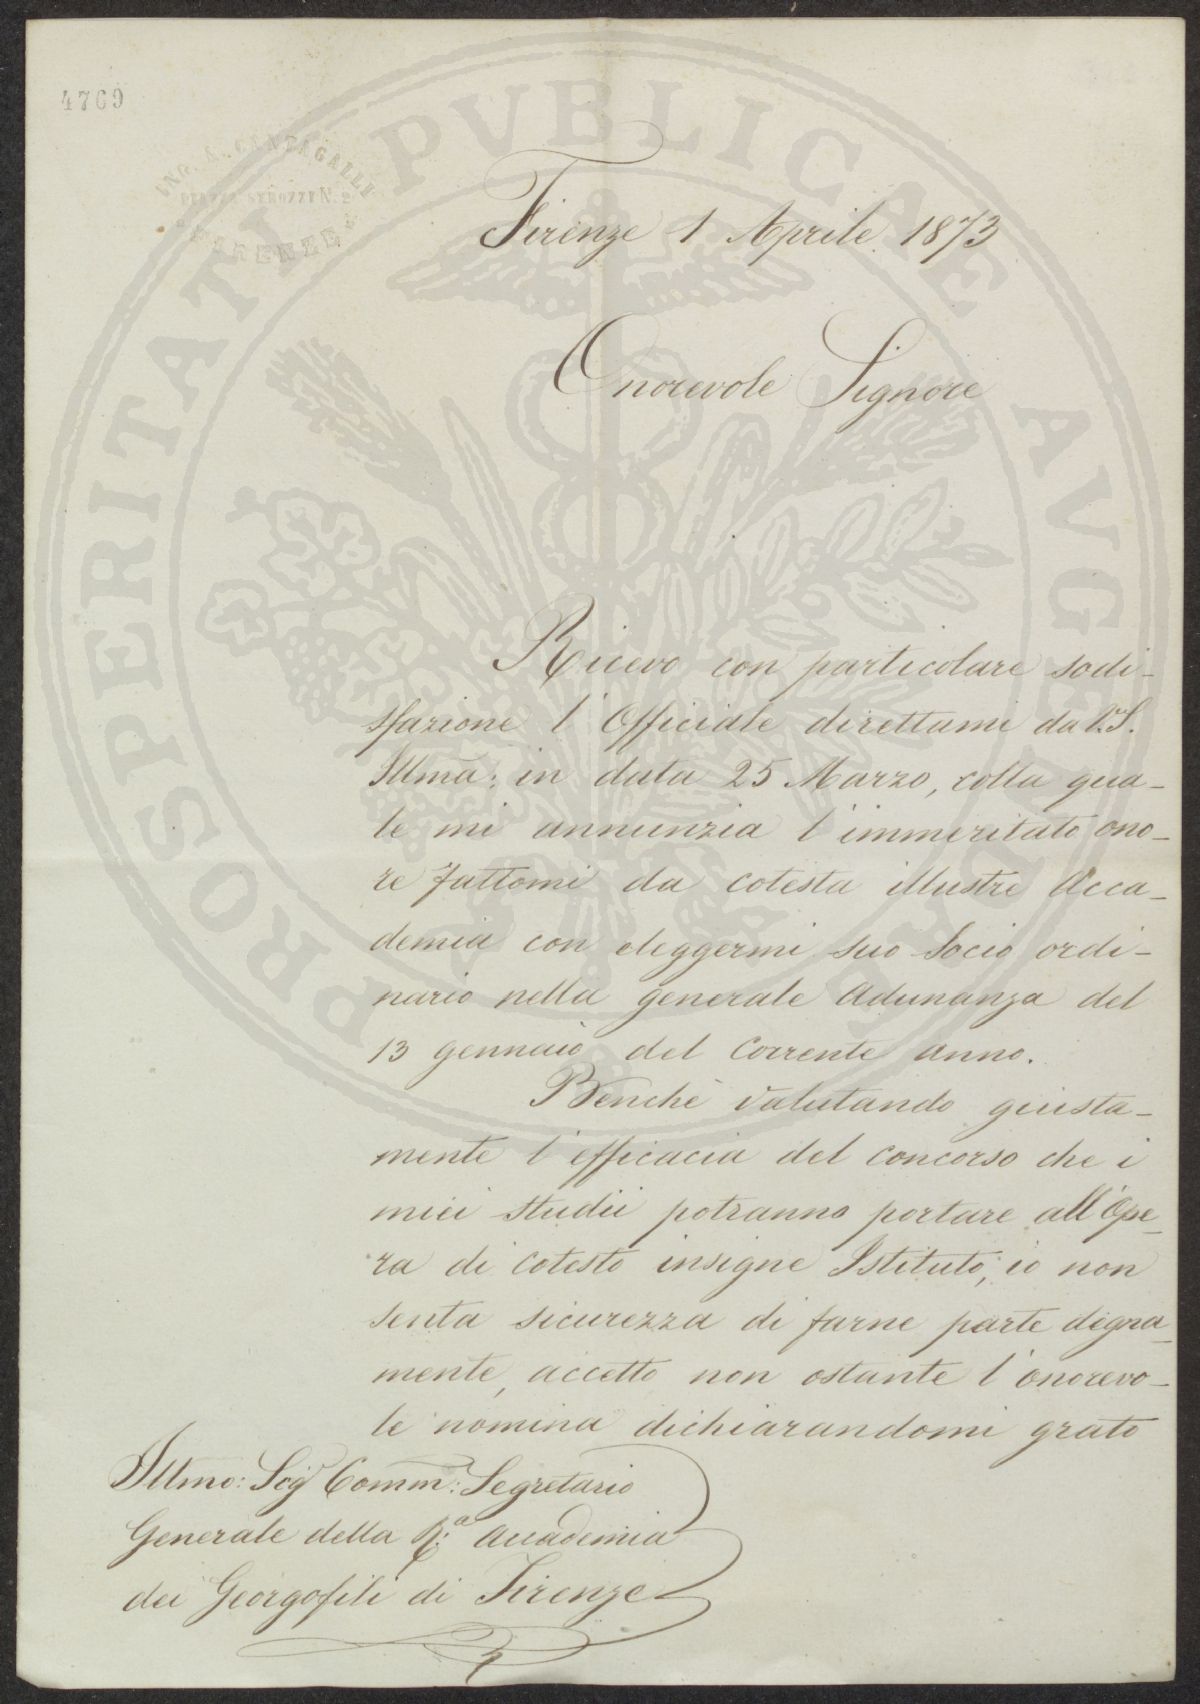 4769
ING. A. CANTAGALLI
PIAZZA STROZZI N. 2
FIRENZE
PROSPERITATI PVBLICAE AVGENDAE
Firenze 1 Aprile 1873
Onorevole Signore
Ricevo con particolare sodi-
sfazione l'Officiale direttami da V.S.
Illma: in data 25 Marzo, colla qua-
le mi annunzia l'immeritato ono-
re fattomi da cotesta illustre Acca-
demia con eleggermi suo Socio ordi-
nario nella generale Adunanza del
13 gennaio del Corrente anno.
Benchè valutando giusta-
mente l'efficacia del concorso che i
miei studii potranno portare all'Ope-
ra di cotesto insigne Istituto, io non
senta sicurezza di farne parte degna-
mente, accetto non ostante l'onorevo-
le nomina dichiarandomi grato
Illmo: Sig Comm: Segretario
Generale della R.a Accademia
dei Georgofili di Firenze